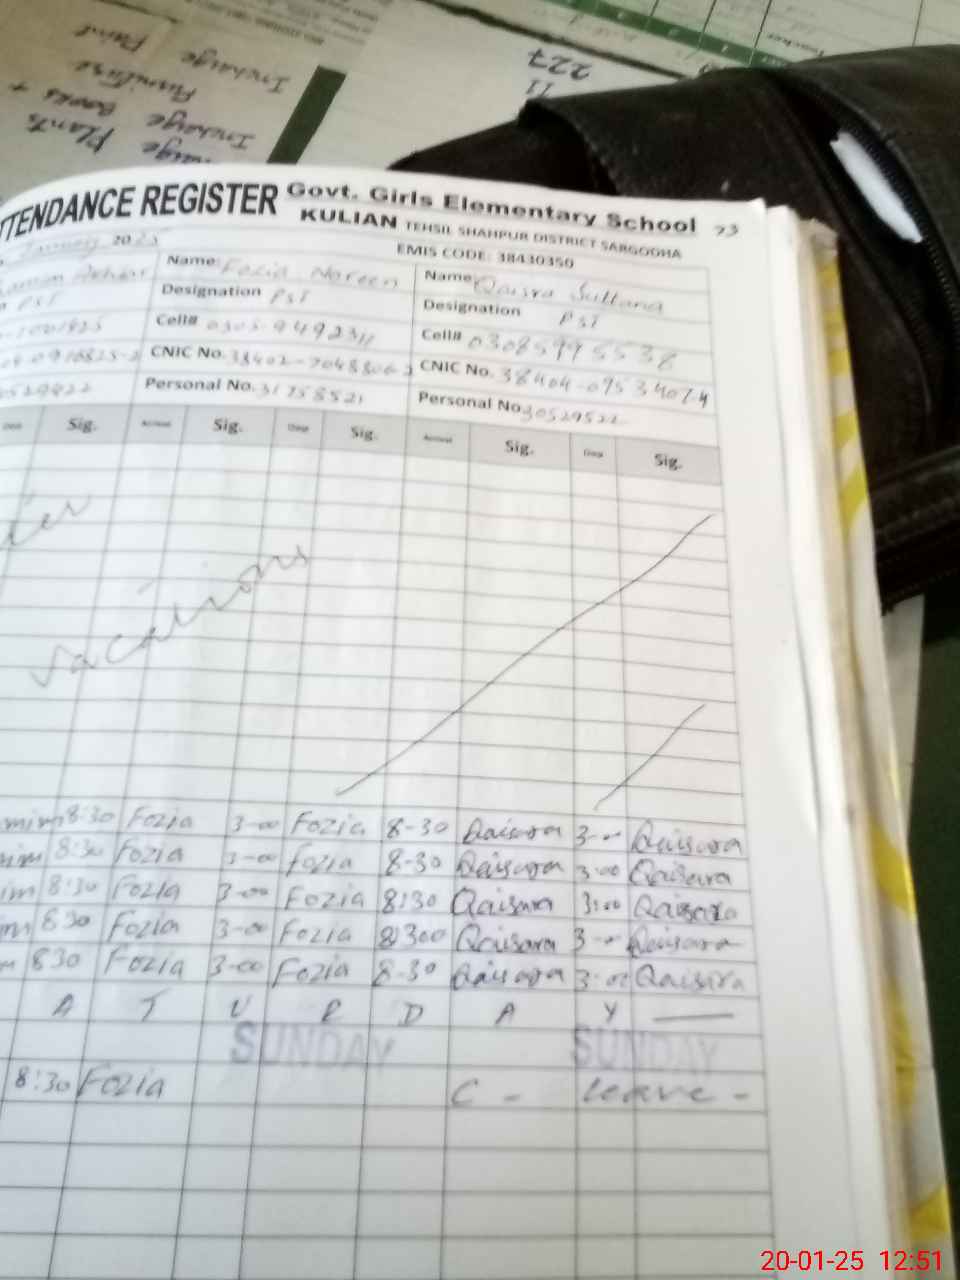 227
Plants
Incharge
Books +
Furniture
Incharge
Paint
TTENDANCE REGISTER Govt. Girls Elementary School 73
KULIAN TEHSIL SHAHPUR DISTRICT SARGODHA
January 2025 EMIS CODE: 38430350
Name: Fozia Noreen Name: Qaisra Sultana
PST Designation PST Designation PST
Cell# 0305-9492311 Cell# 03085995538
CNIC No. CNIC No. 38404-0953407-4
Personal No. 31758521 Personal No. 30529522
Sig. Arrival Sig. Dep Sig. Arrival Sig. Dep Sig.
ter
vacations
mim 8:30 Fozia 3-00 Fozia 8-30 Qaisara 3-00 Qaisara
im 8:30 Fozia 3-00 Fozia 8-30 Qaisara 3-00 Qaisara
im 8:30 Fozia 3-00 Fozia 8:30 Qaisara 3:00 Qaisara
im 830 Fozia 3-00 Fozia 8300 Qaisara 3-00 Qaisara
m 830 Fozia 3-00 Fozia 8-30 Qaisara 3-00 Qaisara
A T U R D A Y
SUNDAY SUNDAY
8:30 Fozia C - leave -
20-01-25 12:51